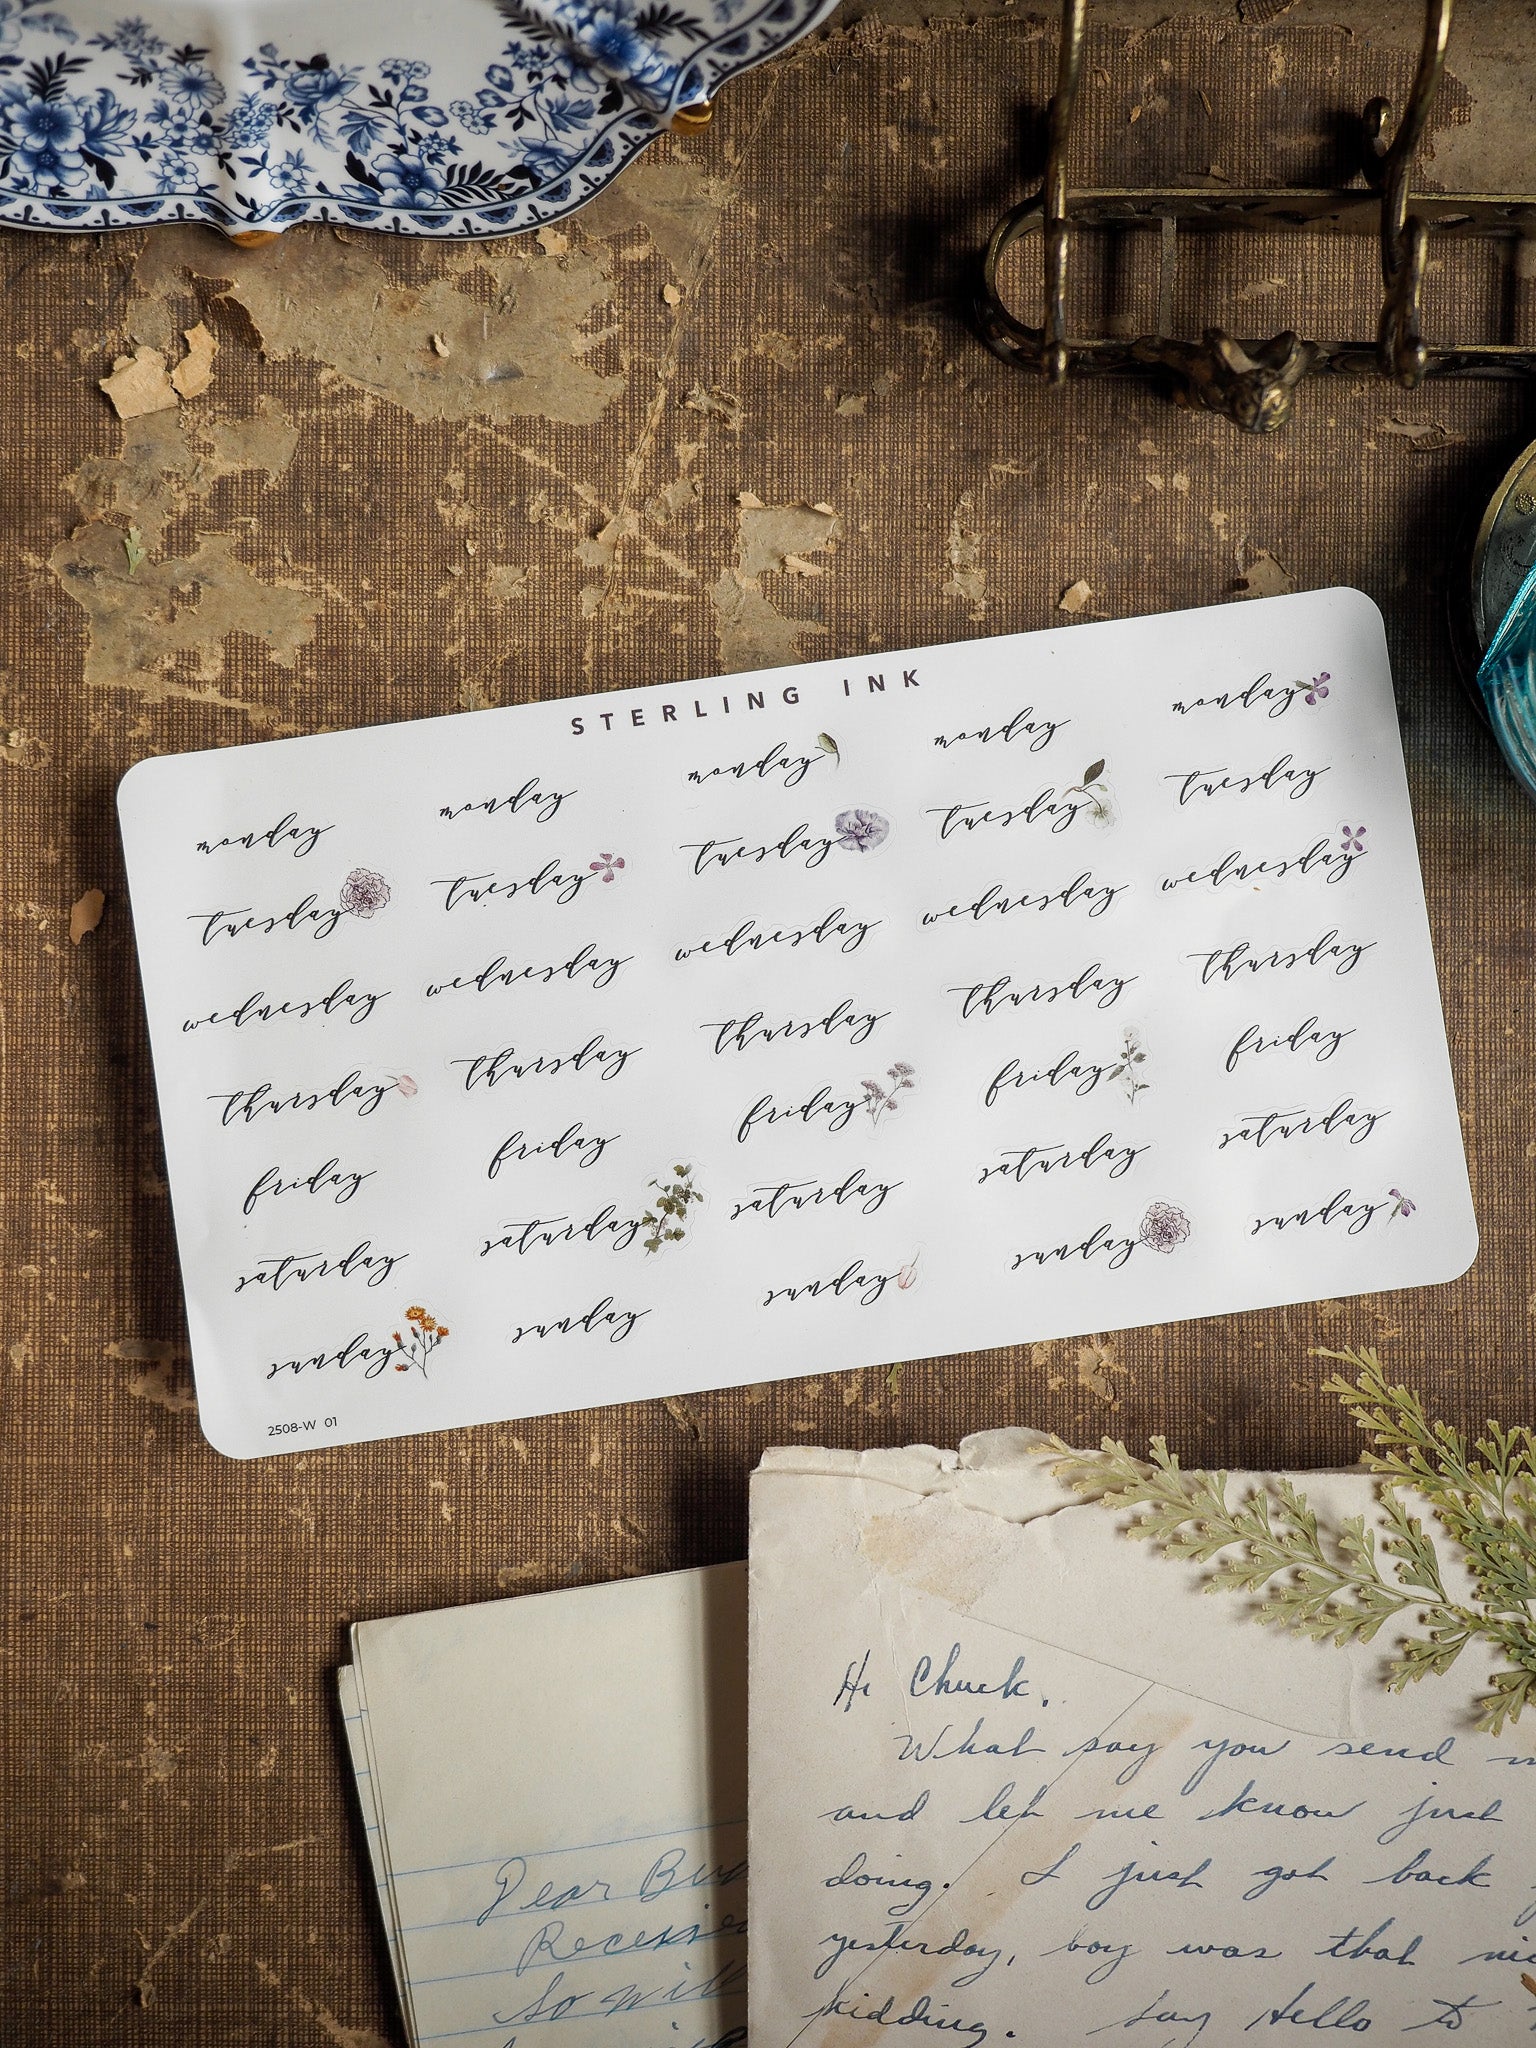 STERLING INK
monday monday monday monday monday
tuesday tuesday tuesday tuesday tuesday
wednesday wednesday wednesday wednesday wednesday
thursday thursday thursday thursday thursday
friday friday friday friday friday
saturday saturday saturday saturday saturday
sunday sunday sunday sunday sunday
2508-W 01
Hi Chuck.
What say you send
and let me know just
doing. I just got back
yesterday, boy was that
kidding. Say Hello to
Dear
So will